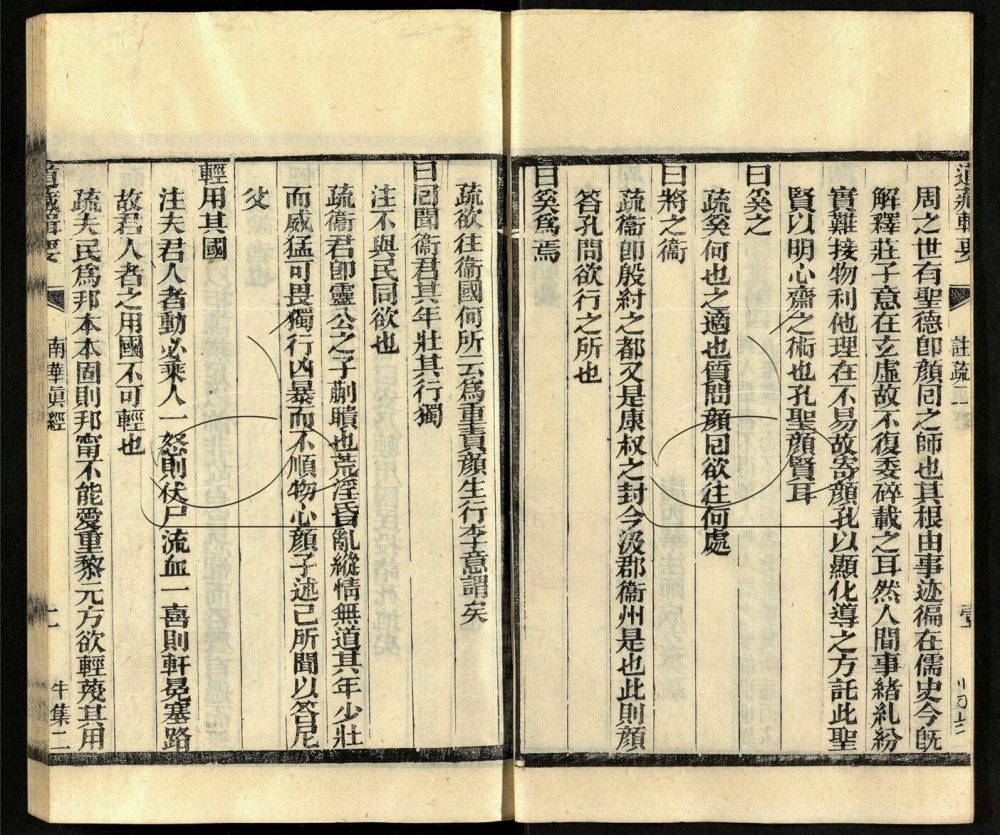 道藏輯要
註疏二
周之世有聖德卽顏囘之師也其根由事迹徧在儒史今旣
解釋莊子意在玄虛故不復委碎載之耳然人間事緒糺紛
實難接物利他理在不易故寄顏孔以顯化導之方託此聖
賢以明心齋之術也孔聖顏賢耳
曰奚之
疏奚何也之適也質問顏囘欲往何處
曰將之衞
疏衞卽殷紂之都又是康叔之封今汲郡衞州是也此則顏
答孔問欲行之所也
曰奚爲焉
疏欲往衞國何所云爲重責顏生行李意謂矣
曰囘聞衞君其年壯其行獨
注不與民同欲也
疏衞君卽靈公之子蒯聵也荒淫昏亂縱情無道其年少壯
而威猛可畏獨行凶暴而不順物心顏子述己所聞以答尼
父
輕用其國
注夫君人者動必乘人一怒則伏尸流血一喜則軒冕塞路
故君人者之用國不可輕也
疏夫民爲邦本本固則邦甯不能愛重黎元方欲輕蔑其用
道藏輯要
南華眞經
牛集二